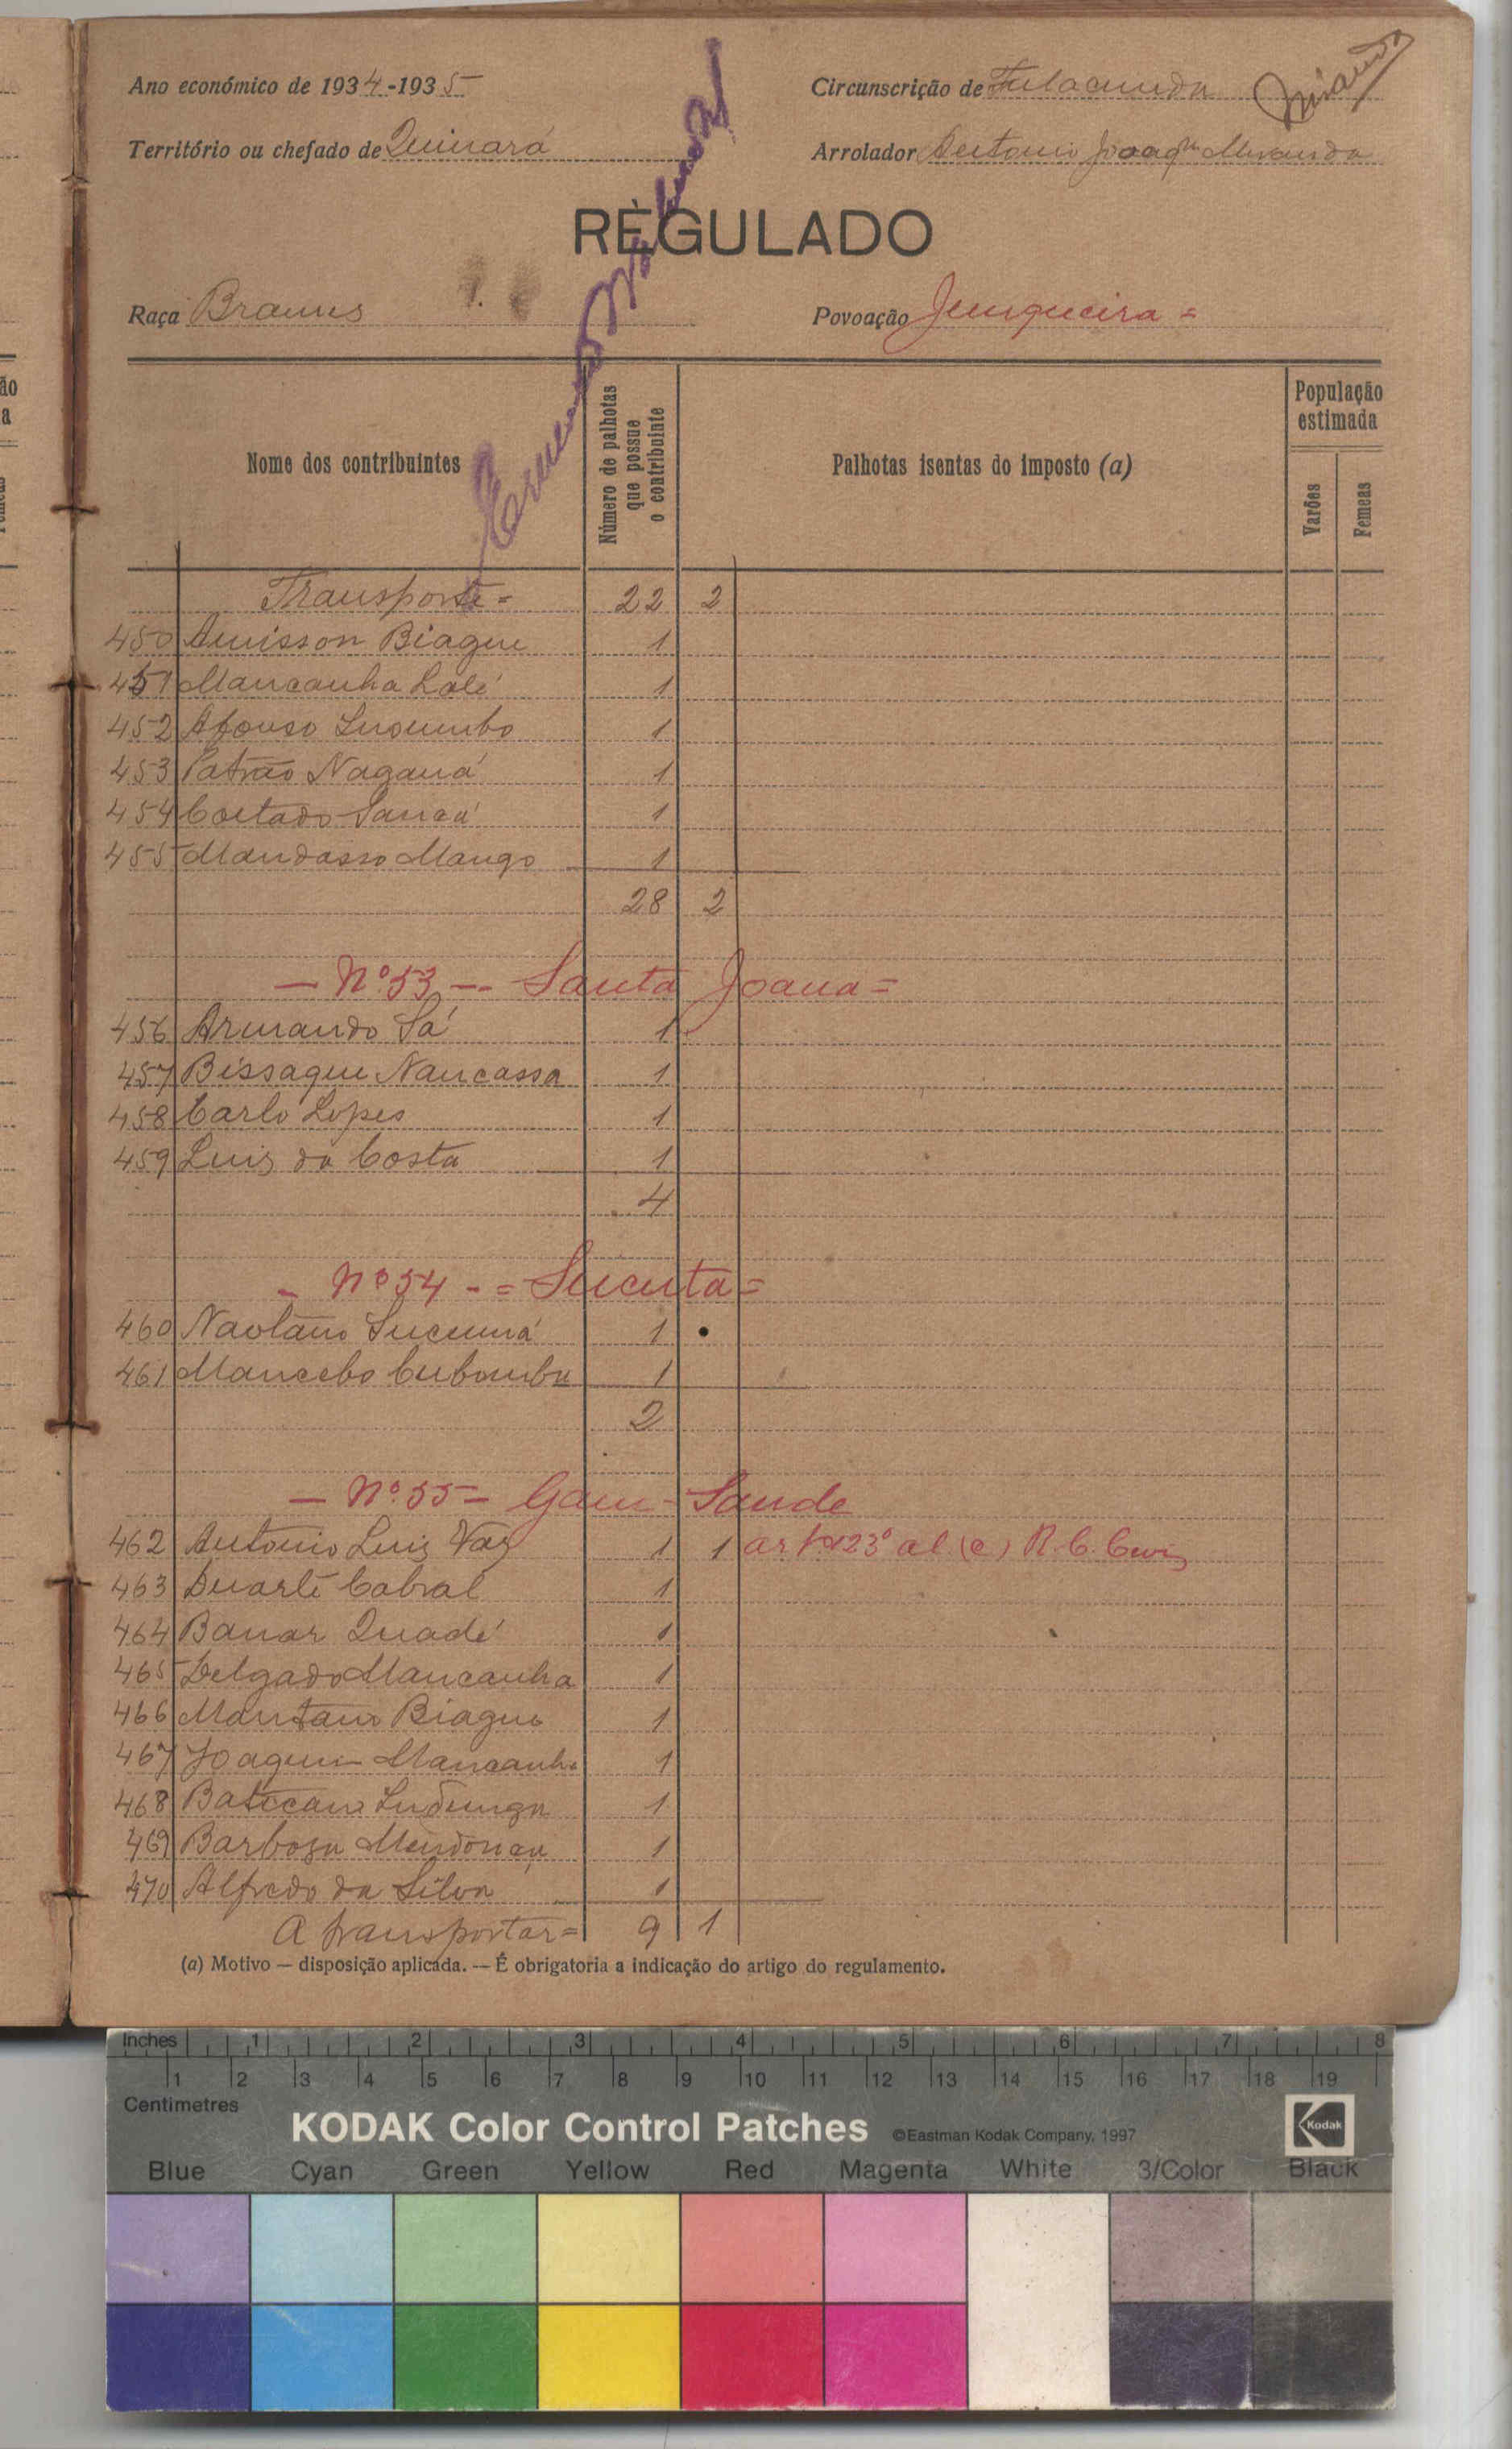 Ano económico de 1934-1935 Circunscrição de Fulacunda Miranda
Território ou chefado de Quinará Arrolador Antonio Joaqm Miranda
REGULADO
Raça Brames Povoação Junqueira =
Nome dos contribuintes
Número de palhotas que possue o contribuinte
Palhotas isentas do imposto (a)
População estimada
Varões
Femeas
Transporte = 22 2
450 Amisson Biague 1
451 Mancanha Lalé 1
452 Afonso 1
453 Patrão Naganá 1
454 Coitado Sancá 1
455 Mandasso Mango 1
28 2
— Nº 53 — Santa Joana =
456 Armando Sá 1
457 Bissague Nancassa 1
458 Carlo Lopes 1
459 Luis da Costa 1
4
- Nº 54 - = Sucuta =
460 Naolano Sucumá 1
461 Mancebo 1
2
— Nº 55 — Gam-Sande
462 Antonio Luis Vaz 1 1 artº 123º al (e) R. C. Civis
463 Duarte Cabral 1
464 Banar Quadé 1
465 Delgado Mancanha 1
466 Biague 1
467 Joaquim Mancanha 1
468 1
469 Barbosa Mendonça 1
470 Alfredo da Silva 1
A transportar = 9 1
(a) Motivo — disposição aplicada. — É obrigatoria a indicação do artigo do regulamento.
Inches 1 2 3 4 5 6 7 8
1 2 3 4 5 6 7 8 9 10 11 12 13 14 15 16 17 18 19
Centimetres
KODAK Color Control Patches ©Eastman Kodak Company, 1997 Kodak
Blue Cyan Green Yellow Red Magenta White 3/Color Black